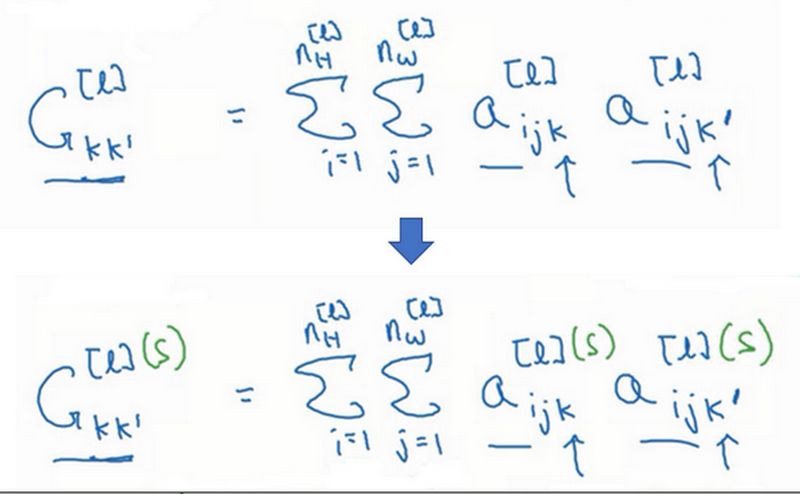 G_{kk'}^{[l]} = \sum_{i=1}^{n_H^{[l]}} \sum_{j=1}^{n_W^{[l]}} a_{ijk}^{[l]} a_{ijk'}^{[l]}
G_{kk'}^{[l](S)} = \sum_{i=1}^{n_H^{[l]}} \sum_{j=1}^{n_W^{[l]}} a_{ijk}^{[l](S)} a_{ijk'}^{[l](S)}